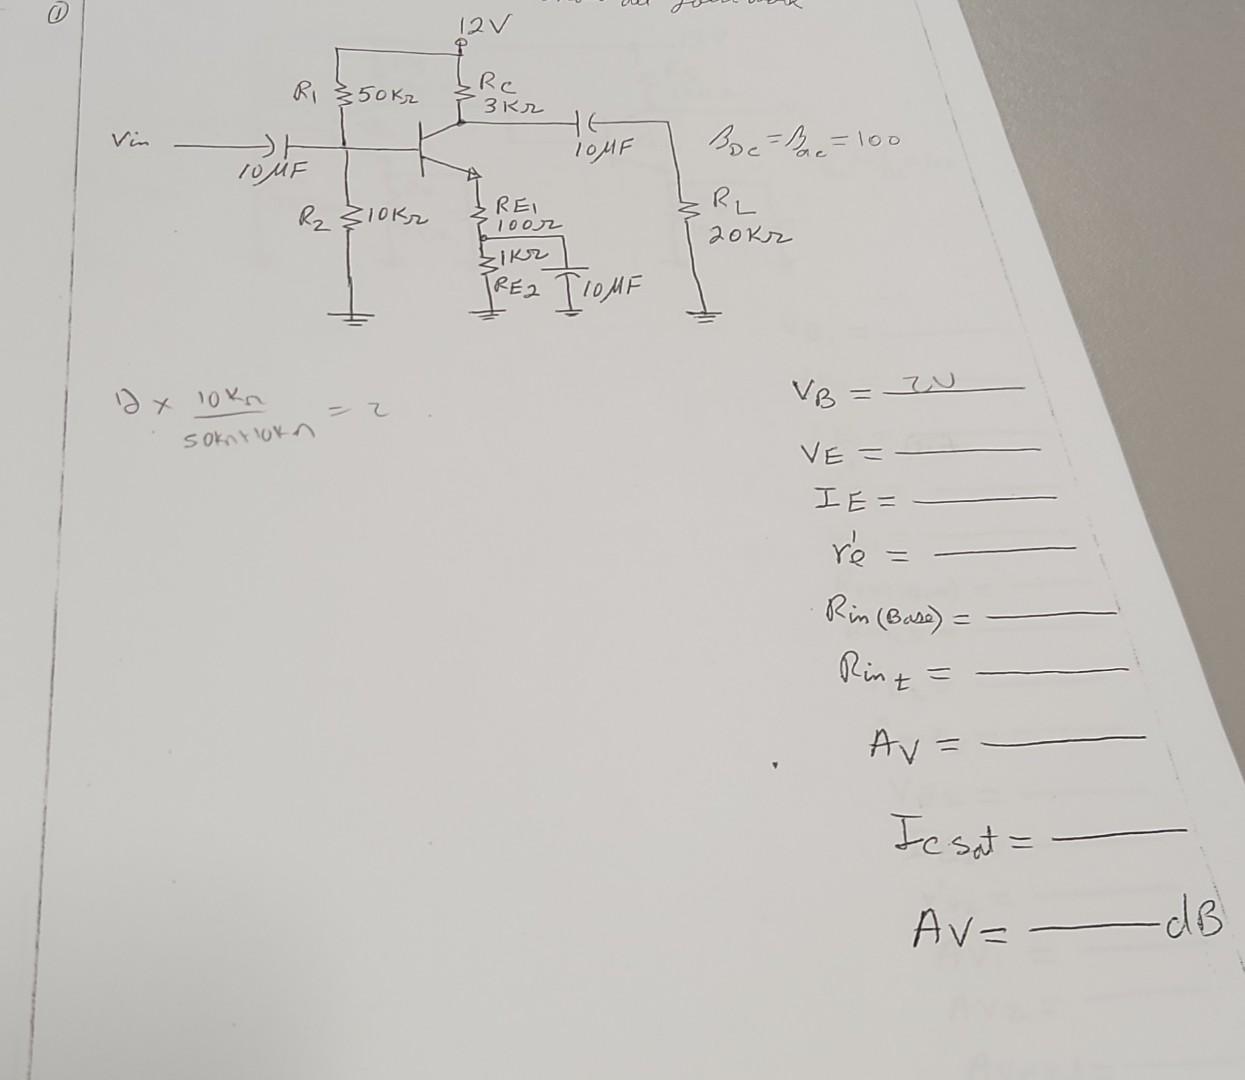 ①
12V
R1 50KΩ
RC
3KΩ
Vin
10µF
10µF
βDC = βac = 100
R2 10KΩ
RE1
100Ω
1KΩ
RE2
10µF
RL
20KΩ
12 × 10KΩ / 50KΩ+10KΩ = 2
VB = 2V
VE =
IE =
r'e =
Rin(Base) =
Rin t =
AV =
IC sat =
AV = dB